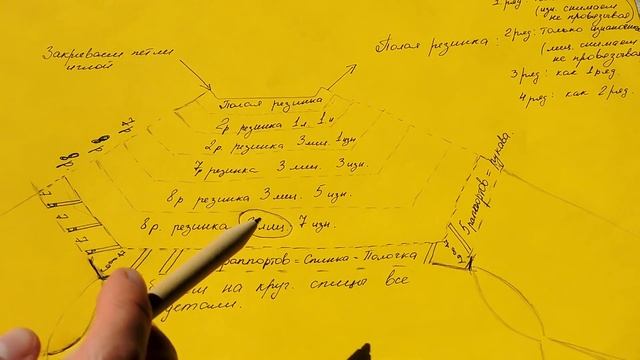 1 ряд:
(изн. снимаем
не провязывая)
Закрываем петли
иглой
Полая резинка:
2 ряд: только изнаночн
(лиц. снимаем
не провязывая
3 ряд: как 1 ряд.
4 ряд: как 2 ряд.
Полая резинка
2р резинка 1л. 1и
2р. резинка 3лиц. 1изн
7р резинка 3 лиц. 3изн.
8р резинка 3лиц. 5 изн.
8р. резинка 3лиц. 7 изн.
5 раппортов = рукава
раппортов = Спинка = Полочка
на круг. спицы все
детали.